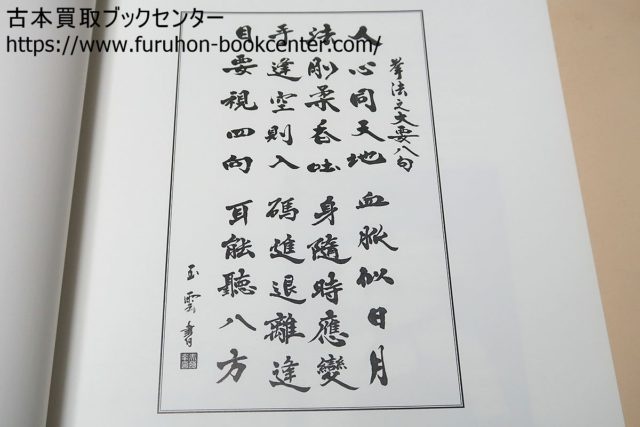 古本買取ブックセンター
https://www.furuhon-bookcenter.com/
拳法之大要八句
人心同天地 血脈似日月
法剛柔呑吐 身隨時應變
手逢空則入 碼進退離逢
目要視四向 耳能聽八方
玉雲書